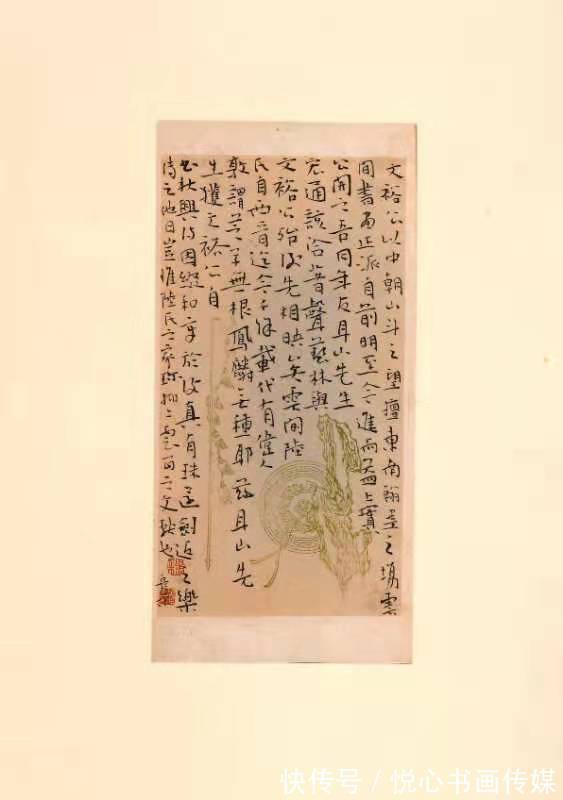 文裕公以中朝山斗之望擅東南翰墨之場雲
間書画正派自前明至今進而益上實
公開之吾同年友耳山先生
宏通該洽蜚聲藝林與
文裕公殆後先相映矣雲間陸
氏自兩晉迄今千餘載代有偉人
孰謂芝草無根鳳麟無種耶兹耳山先
生獲文裕公自
書秋興詩因綴和章於後真有珠還劍返之樂
傳之他日豈惟陸氏之家珍抑亦雲間之文獻也
快传号/悦心书画传媒